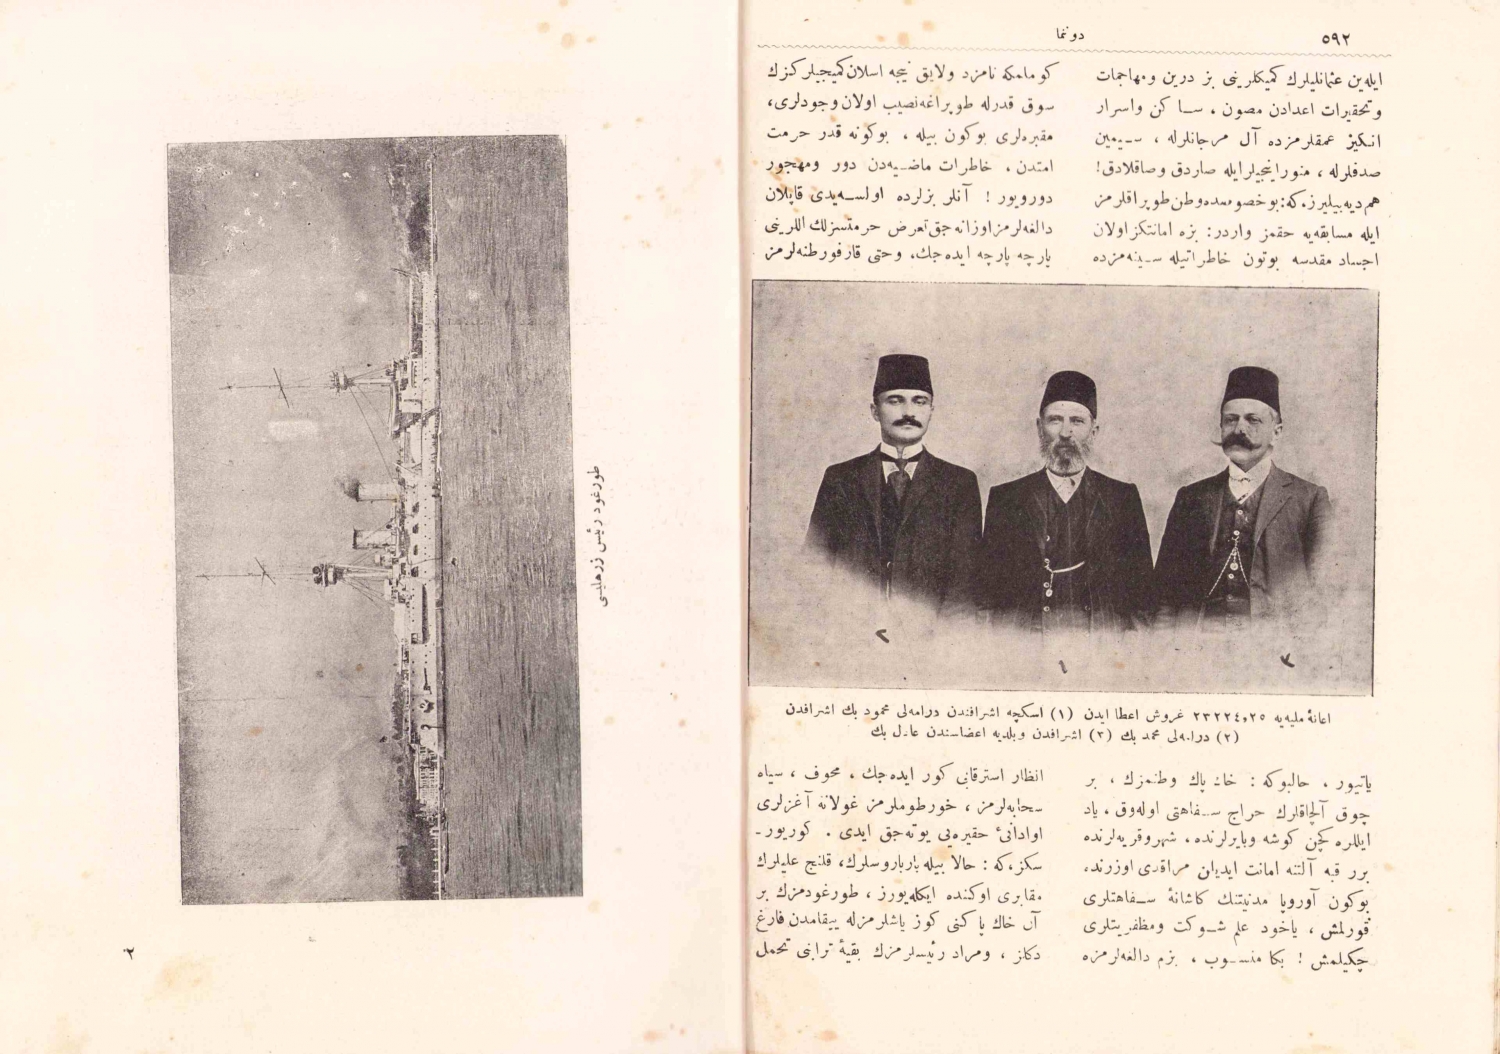 ٥٩٢
دونما
ایله‌ین عثمانلیلرك كمیكلرینی بز درین ومهاجمات
وتحقیرات اعدادن مصون ، ساكن واسرار
انكیز عمقلرمزده آل مرجانلرله ، سیمین
صدفلرله ، منور اینجیلر ایله صاردق وصاقلادق!
هم دیه بیلیرز. كه: بو خصوصده وطن طوپراقلرمز
ایله مسابقه‌یه حقمز واردر: بزه امانتكز اولان
اجساد مقدسه بوتون خاطراتیله سینه‌مزده
كومامكه نامزد ولایق نیجه اسلان كمیجیلركزك
سوق قدرله طوپراغه نصیب اولان وجودلری،
مقبره‌لری بوكون بیله ، بوكونه قدر حرمت
امتدن ، خاطرات ماضیه‌دن دور ومهجور
دورویور ! آنلر بزلرده اولسه‌یدی قاپلان
دالغه‌لرمز اوزانه‌جق تعرض حرمتسزلك اللرینی
پارچه پارچه ایده‌جك، وحتی قارفورطنه‌لرمز
اعانهٔ ملیه‌یه ٢٣٢٢٤,٢٥ غروش اعطا ایدن (١) اسكچه اشرافندن درامه‌لی محمود بك اشرافدن
(٢) درامه‌لی محمد بك (٣) اشرافدن وبلدیه اعضاسندن عادل بك
٢
١
٣
یاتیور ، حالبوكه : خاك پاك وطنمزك ، بر
چوق آلچاقلرك حراج سفاهتی اوله‌وق ، یاد
ایللره كچن كوشه وبایرلرنده ، شهر وقریه‌لرنده
برر قبه آلتنه امانت ایدیلن مراقدی اوزرنده
بوكون آوروپا مدنیتنك كاشانهٔ سفاهتلری
قورلمش ، یاخود علم شوكت ومظفریتلری
چكیلمش ! بكا منسوب ، بزم دالغه‌لرمزه
انظار استرقابی كور ایده‌جك ، مخوف ، سیاه
سحابه‌لرمز ، خورطوملرمز غولانه آغزلری
او ادانیٔ حقیره‌یی یوته‌جق ایدی . كوریور-
سكز، كه : حالا بیله بارباروسلرك، قلنج علیلرك
مقابری اوكنده ایكله‌یورز ، طورغودمزك بر
آن خاك پاكنی كوز یاشلرمزله ییقامدن فارغ
دكلز ، ومراد رئیسلرمزك بقیهٔ ترابنی تحمل
طورغود رئیس زرهلیسی
٢